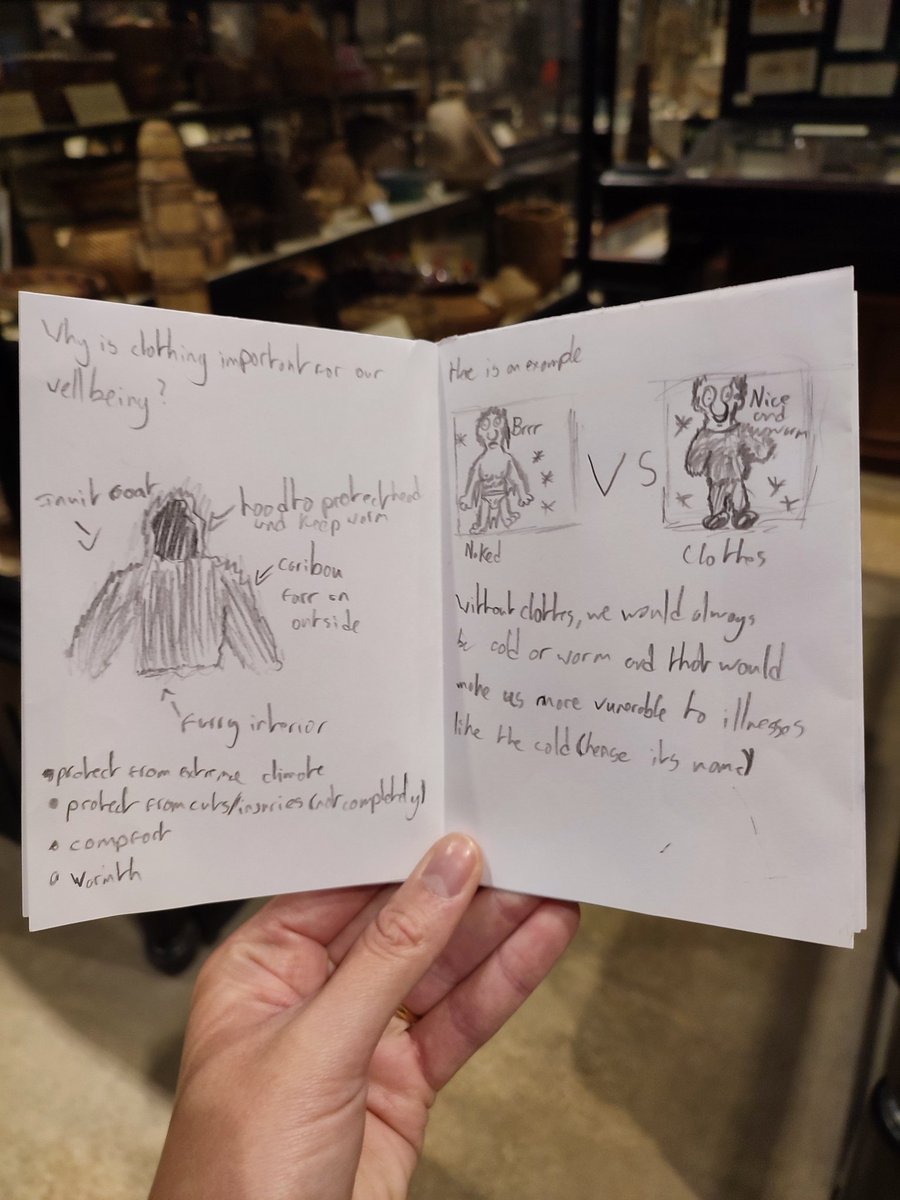 Why is clothing important for our
well being?
Inuit coat
hood to protect head
and keep worm
caribou
farr on
outside
furry interior
• protect from extreme climate
• protect from cuts/injuries (not completely)
• compfort
• warmth
the is an example
Brrr
VS
Nice
and
worm
Naked
Clothes
Without clothes, we would always
be cold or worm and that would
make us more vunerable to illnesses
like the cold (hense its name)